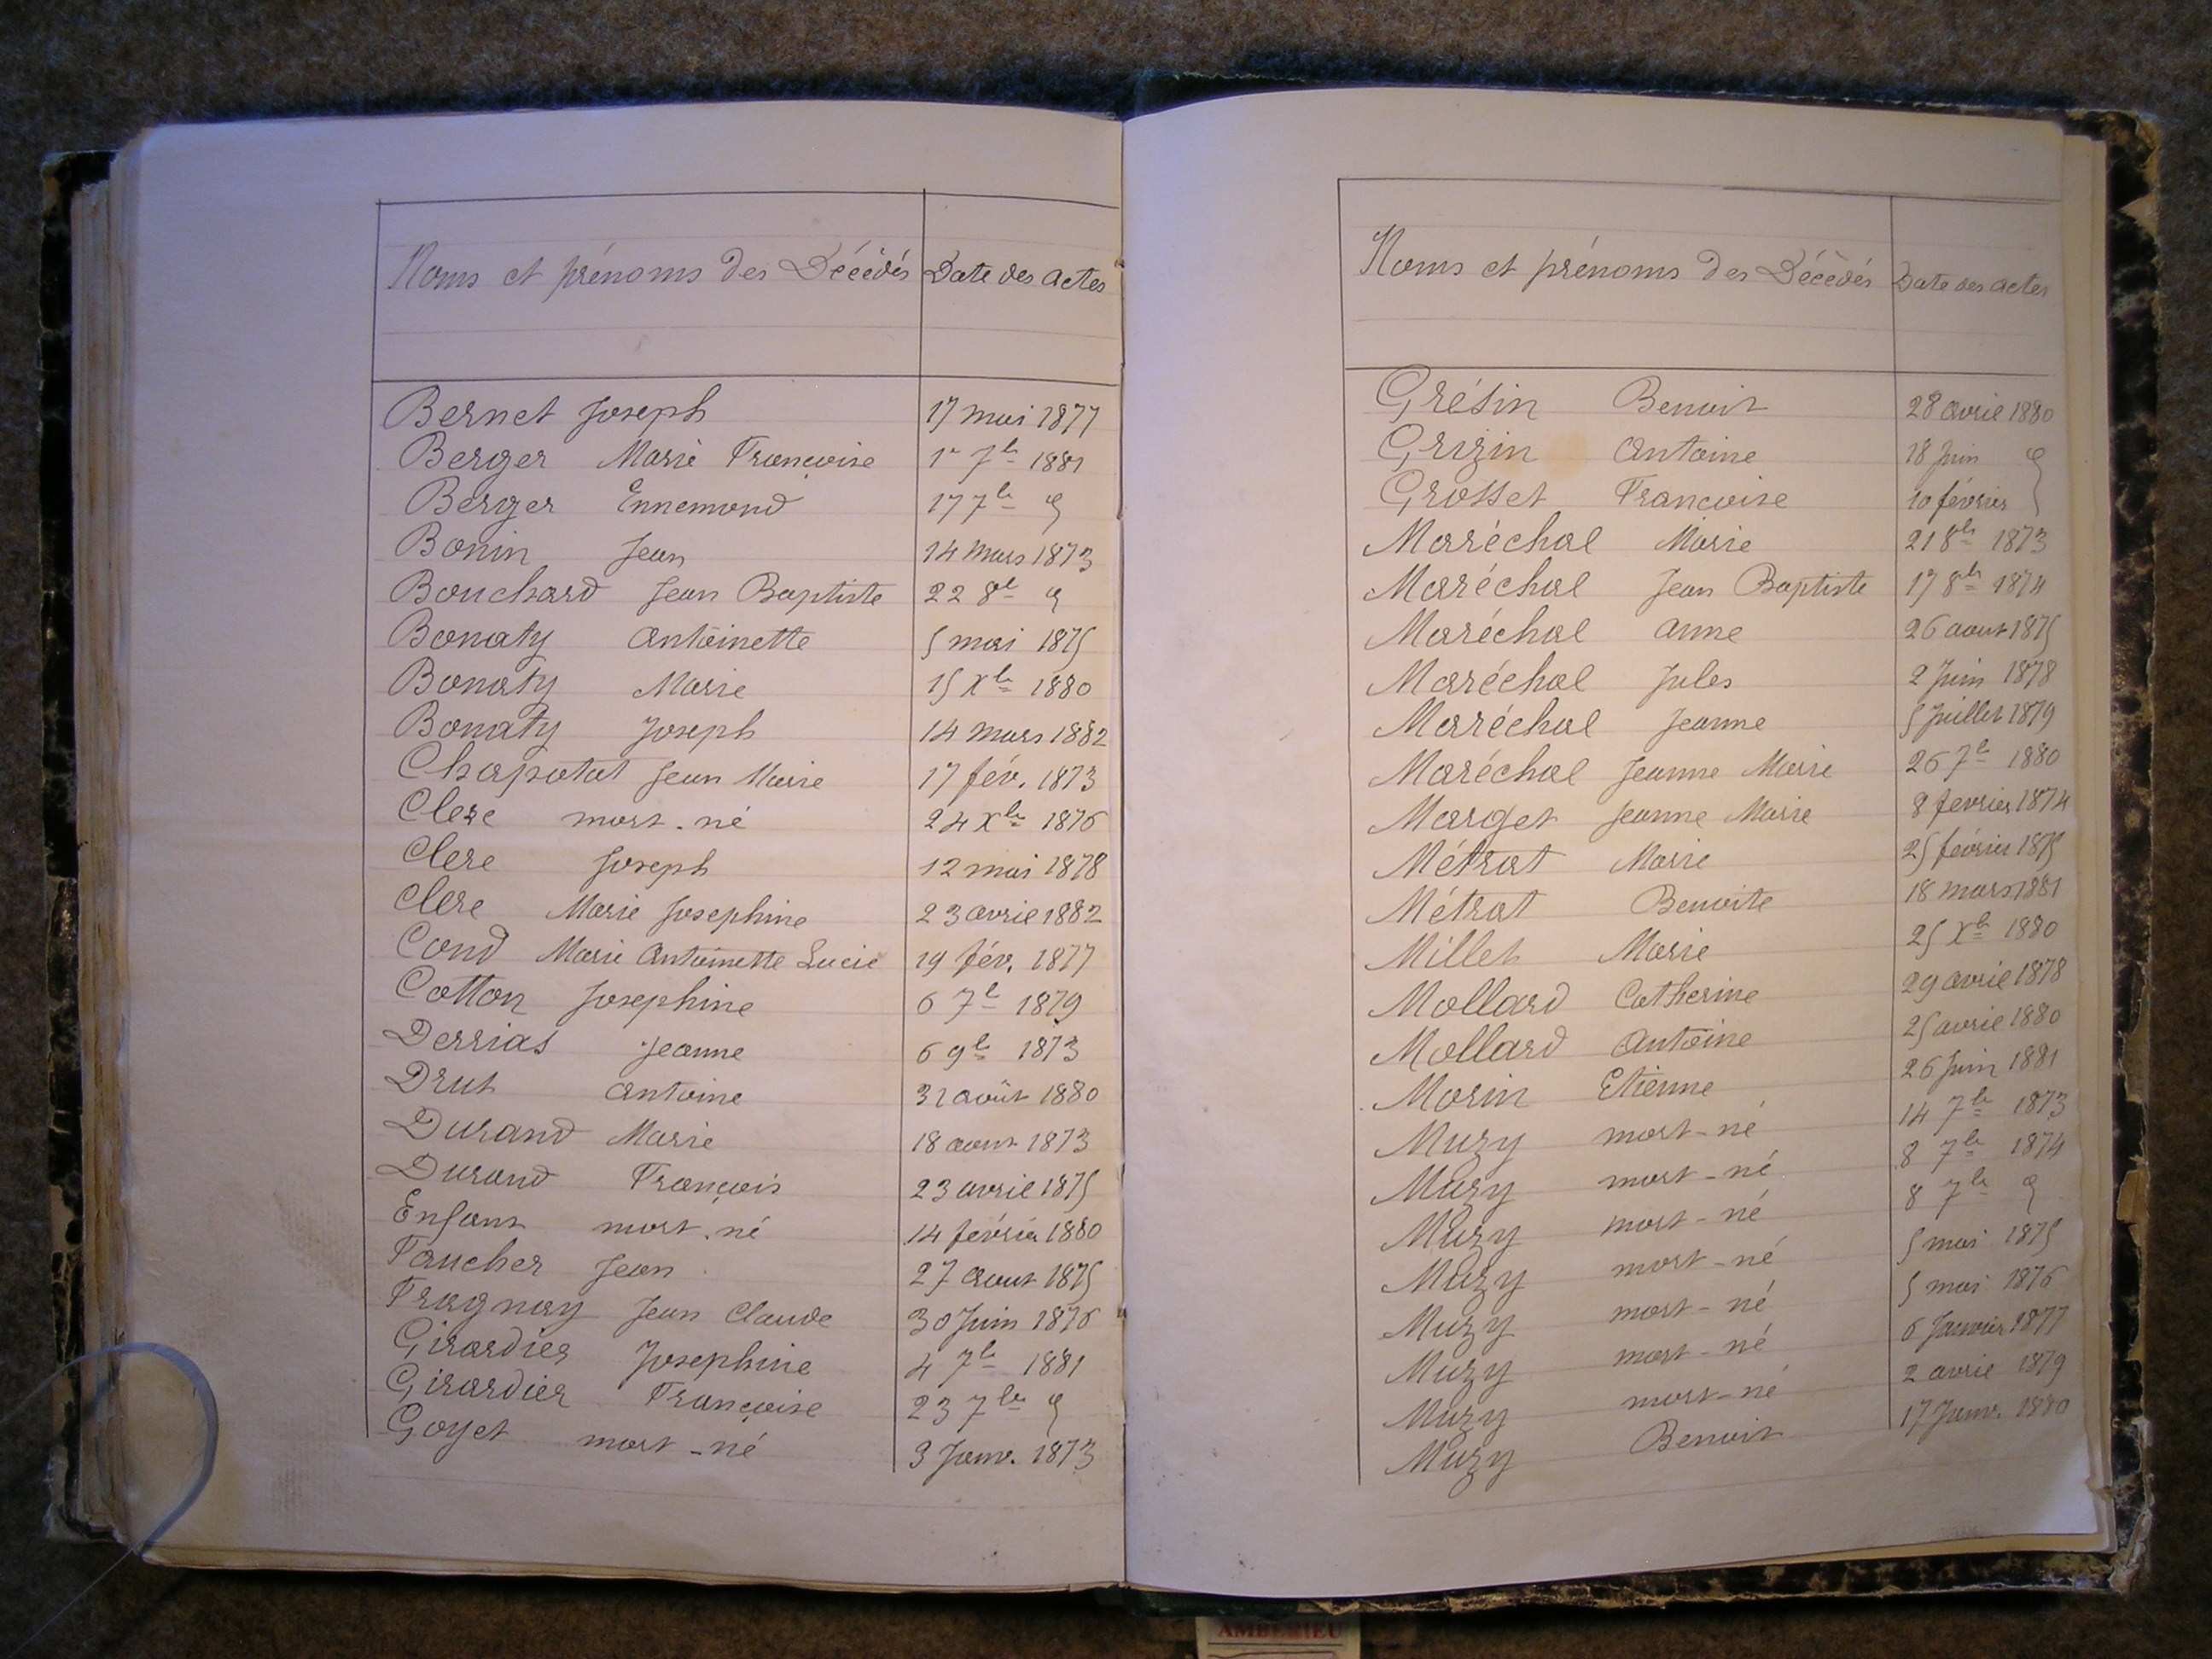 Noms et prénoms des Décédés Date des actes
Bernet Joseph 17 mai 1877
Berger Marie Françoise 1er 7bre 1881
Berger Ennemond 17 7bre
Bonin Jean 14 mars 1873
Bouchard Jean Baptiste 22 8bre
Bonaty Antoinette 5 mai 1875
Bonaty Marie 15 Xbre 1880
Bonaty Joseph 14 mars 1882
Chapotat Jean Marie 17 fév. 1873
Clerc mort-né 24 Xbre 1876
Clerc Joseph 12 mai 1878
Clerc Marie Josephine 23 avril 1882
Cond Marie Antoinette Lucie 19 fév. 1877
Cotton Josephine 6 7bre 1879
Derrias Jeanne 6 9bre 1873
Drut Antoine 31 août 1880
Durand Marie 18 aout 1873
Durand François 23 avril 1875
Enfant mort-né 14 février 1880
Faucher Jean 27 Aout 1875
Fragnay Jean Claude 30 Juin 1876
Girardier Josephine 4 7bre 1881
Girardier Françoise 23 7bre
Goyet mort-né 3 Janv. 1873
Noms et prénoms des Décédés Date des actes
Grésin Benoit 28 avril 1880
Grizin Antoine 18 Juin
Grosset Françoise 10 février
Maréchal Marie 21 8bre 1873
Maréchal Jean Baptiste 17 8bre 1874
Maréchal Anne 26 aout 1875
Maréchal Jules 2 Juin 1878
Maréchal Jeanne 5 Juillet 1879
Maréchal Jeanne Marie 26 7bre 1880
Marget Jeanne Marie 8 fevrier 1874
Métrat Marie 25 février 1875
Métrat Benoite 18 mars 1881
Millet Marie 25 Xbre 1880
Mollard Catherine 29 avril 1878
Mollard Antoine 25 avril 1880
Morin Etienne 26 Juin 1881
Muzy mort-né 14 7bre 1873
Muzy mort-né 8 7bre 1874
Muzy mort-né 8 7bre
Muzy mort-né 5 mai 1875
Muzy mort-né 5 mai 1876
Muzy mort-né 6 Janvier 1877
Muzy mort-né 2 avril 1879
Muzy Benoit 17 Janv. 1880
AMBERIEU